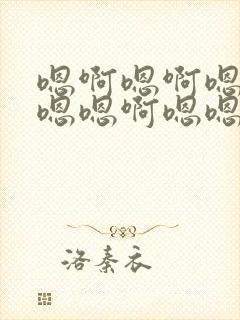 嗯啊嗯啊嗯
嗯嗯啊嗯嗯
洛秦衣